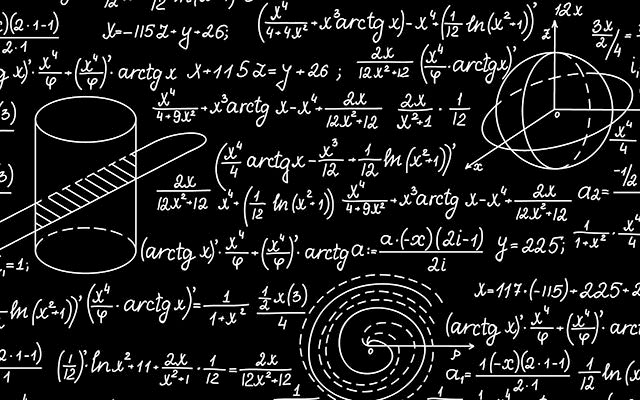 x=-115z+y+26; (x⁴/(4+4x²)+x³arctg x)-x⁴+(1/12 ln(x²+1))' 12x
)(2·1-1)/(2·1) 3x/2/4
g x)'·x⁴/φ+(x⁴/φ)'·arctg x x+115z=y+26; 2x/(12x²+12) (x⁴/φ·arctg x)' z
x⁴/(4+9x²)+x³arctg x-x⁴+2x/(12x²+12) 2x/(x²+1)·1/12 o
(x⁴/4 arctg x-x³/12+1/12 ln(x²+1))' x x⁴/4
2x/(12x²+12) x⁴+(1/12 ln(x²+1)) x⁴/(4+9x²)+x³arctg x-x⁴+2x/(12x²+12) a₂=-1/2
(arctg x)'·x⁴/φ+(x⁴/φ)'·arctg a:=a·(-x)(2i-1)/2i y=225; 1/(1+x²)·x⁴
₁=1; x=117·(-115)+225+2
ln(x²+1))' (x⁴/φ·arctg x)'=1/(1+x²) 1/2 x(3)/4 (arctg x)'·x⁴/φ+(x⁴/φ)'·arc
o p
2·1-1)/1 (1/12)'·ln x²+11+2x/(x²+1)·1/12=2x/(12x²+12) a₁=1(-x)(2·1-1)/(2·1) 1/12 ln(x